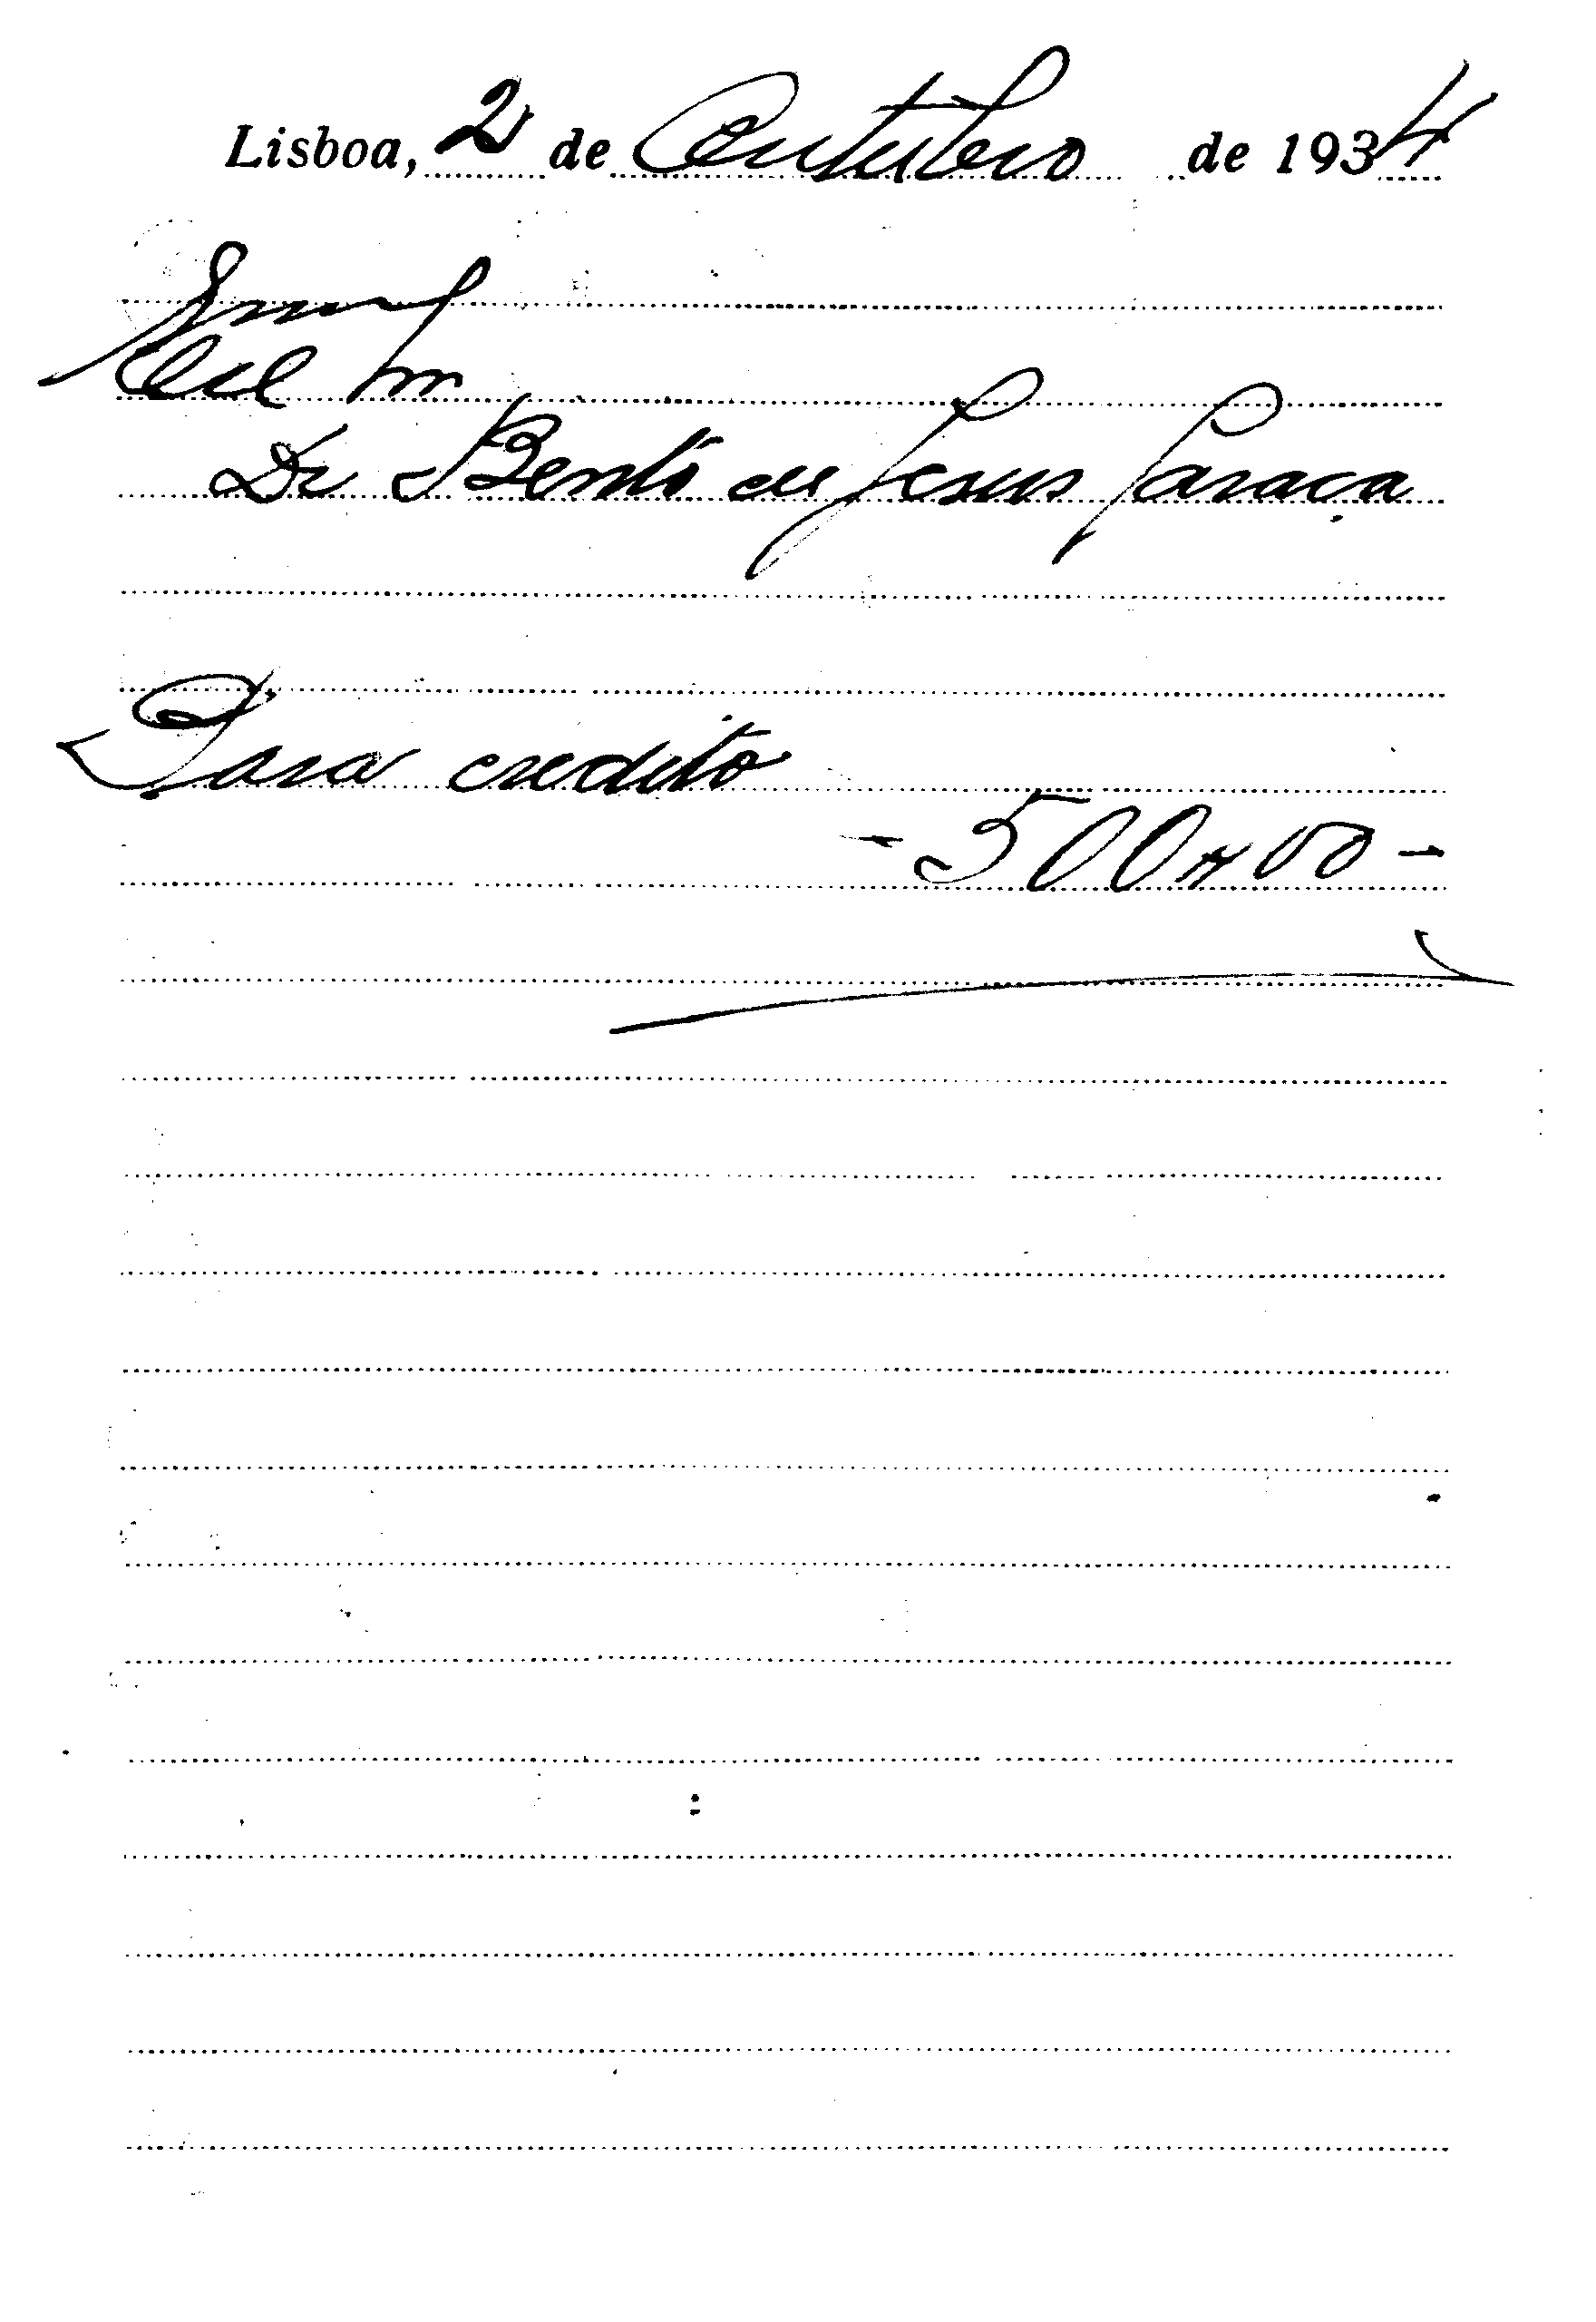 Lisboa, 2 de Outubro de 1934
Dr Bento de Jesus Caraça
Para credito
- 500$00 -